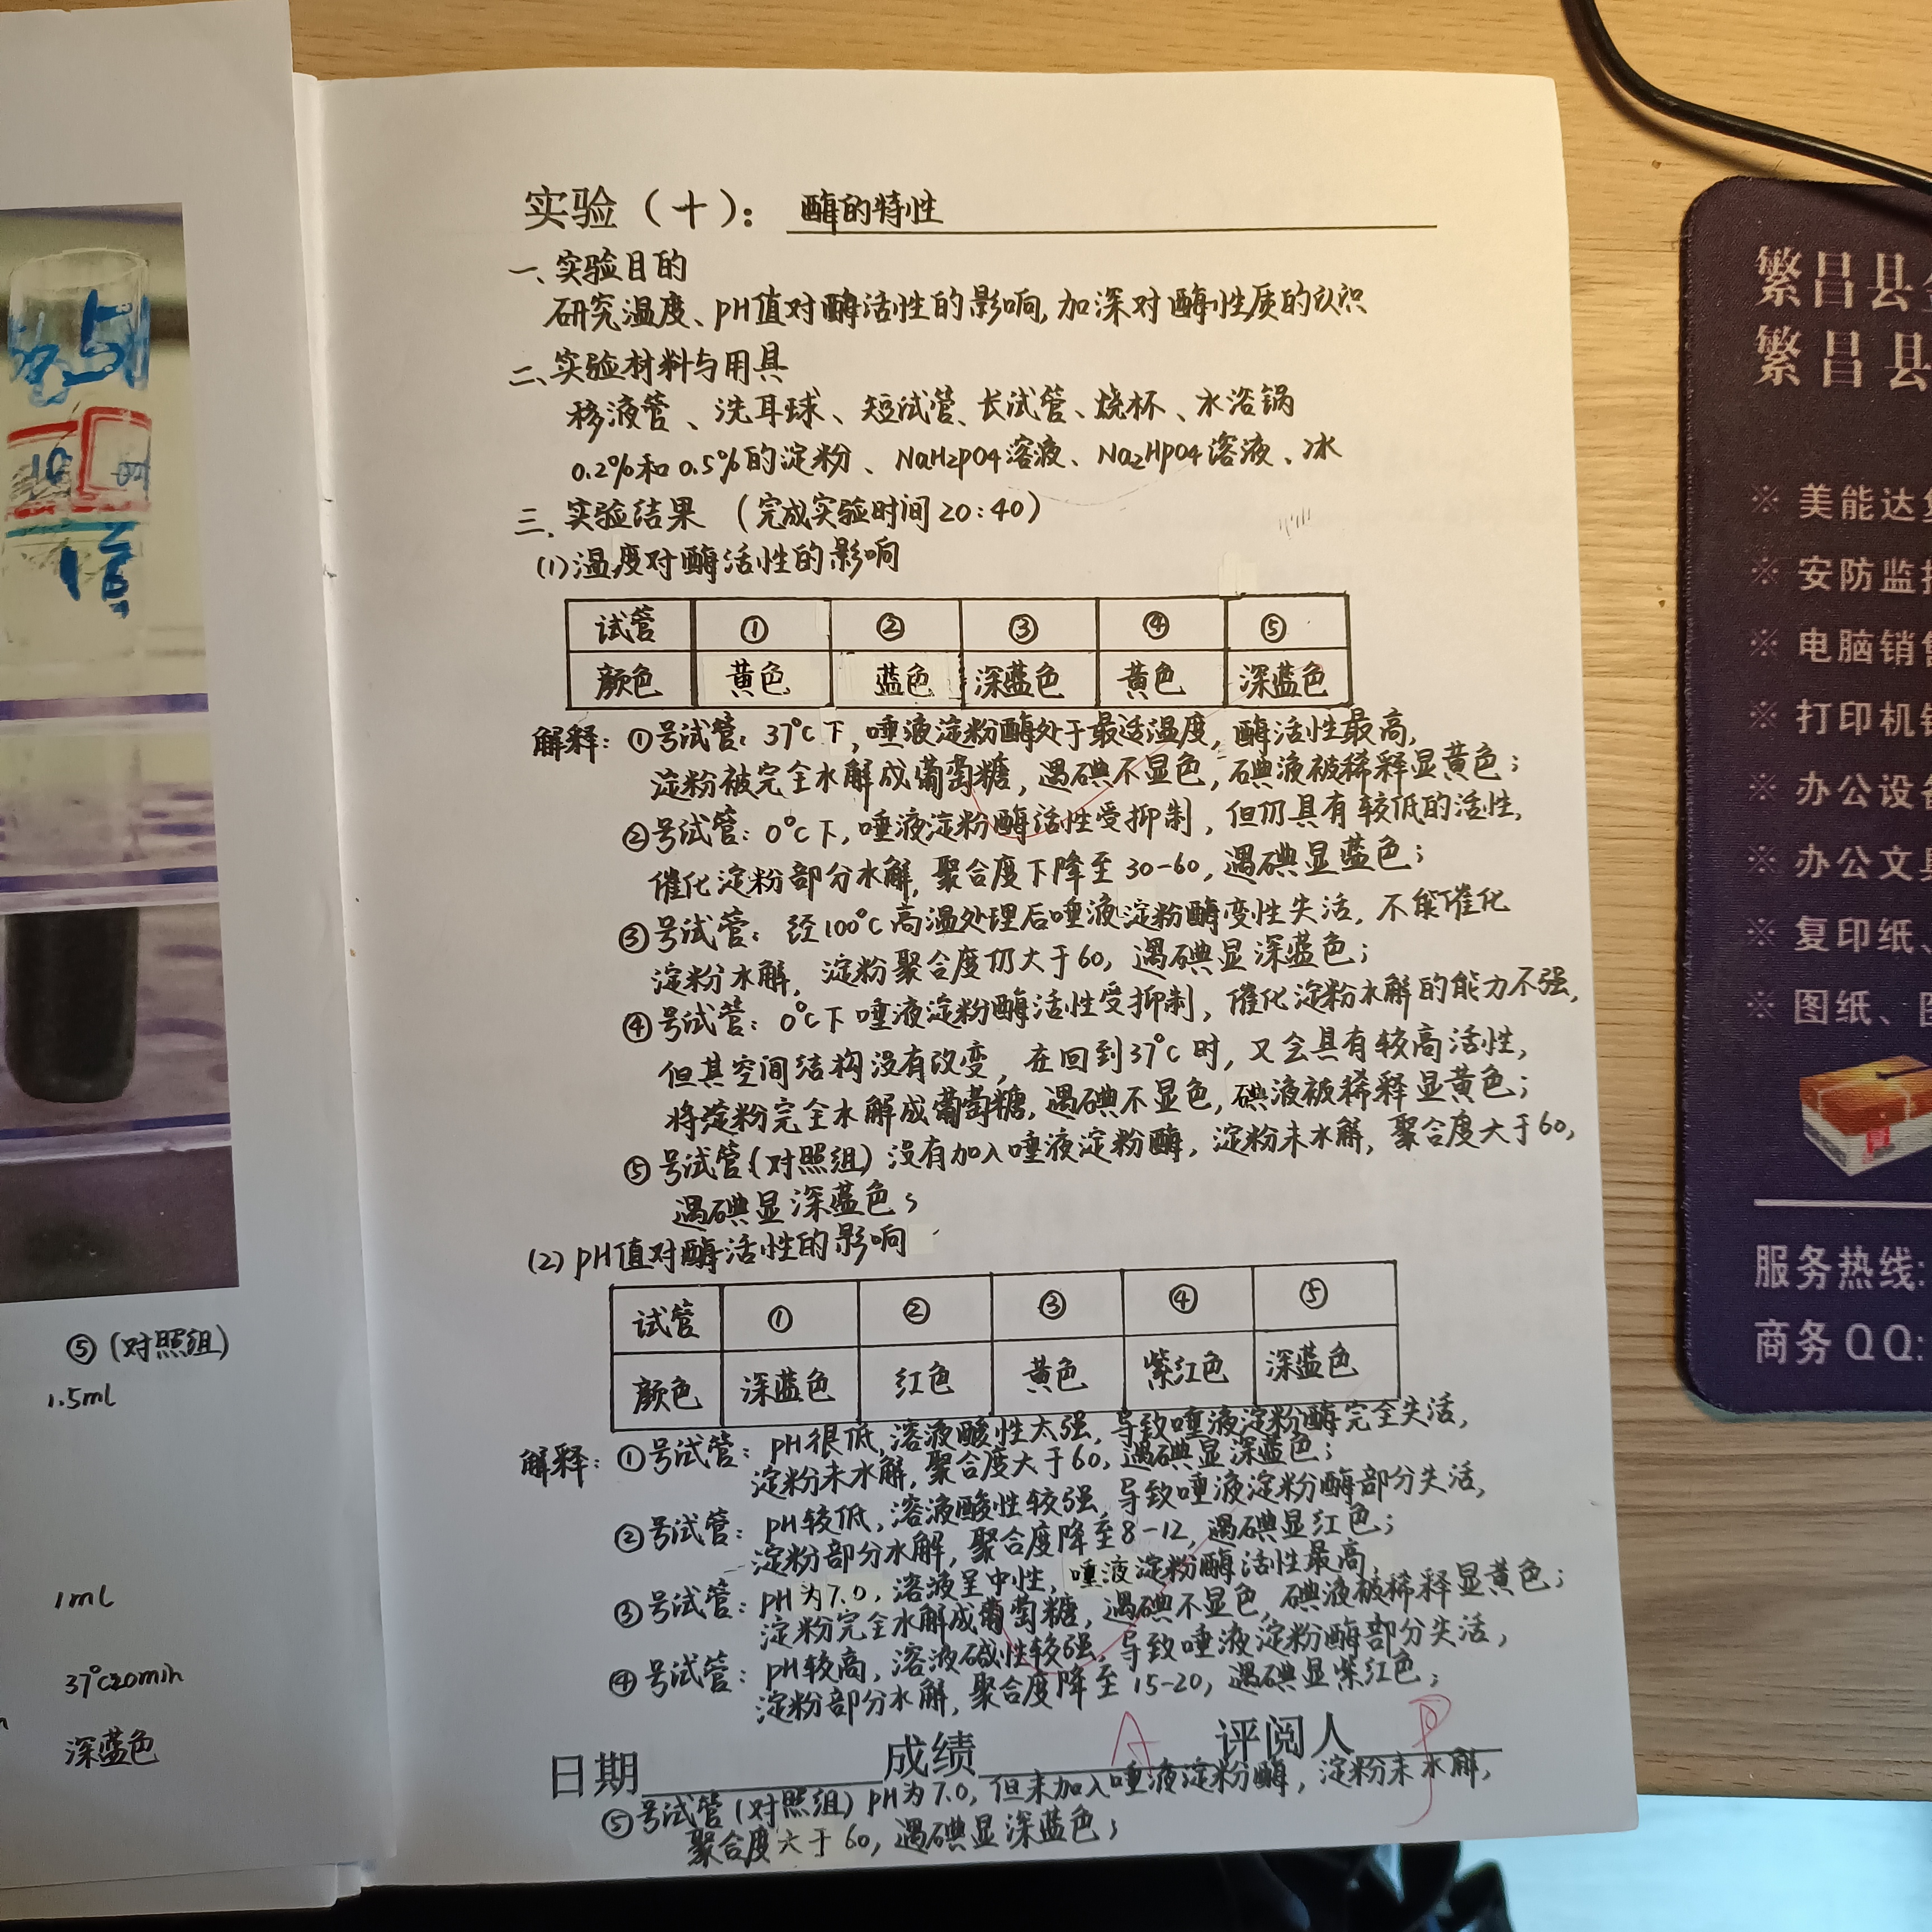 实验（十）： 酶的特性
一、实验目的
研究温度、pH值对酶活性的影响,加深对酶性质的认识
二、实验材料与用具
移液管、洗耳球、短试管、长试管、烧杯、水浴锅
0.2%和0.5%的淀粉、NaH2PO4溶液、Na2HPO4溶液、冰
三、实验结果（完成实验时间20:40）
(1)温度对酶活性的影响
试管 ① ② ③ ④ ⑤
颜色 黄色 蓝色 深蓝色 黄色 深蓝色
解释：①号试管：37°C下,唾液淀粉酶处于最适温度,酶活性最高,
淀粉被完全水解成葡萄糖,遇碘不显色,碘液被稀释显黄色;
②号试管：0°C下,唾液淀粉酶活性受抑制,但仍具有较低的活性,
催化淀粉部分水解,聚合度下降至30-60,遇碘显蓝色;
③号试管：经100°C高温处理后唾液淀粉酶变性失活,不能催化
淀粉水解,淀粉聚合度仍大于60,遇碘显深蓝色;
④号试管：0°C下唾液淀粉酶活性受抑制,催化淀粉水解的能力不强,
但其空间结构没有改变,在回到37°C时,又会具有较高活性,
将淀粉完全水解成葡萄糖,遇碘不显色,碘液被稀释显黄色;
⑤号试管(对照组)没有加入唾液淀粉酶,淀粉未水解,聚合度大于60,
遇碘显深蓝色;
(2)pH值对酶活性的影响
试管 ① ② ③ ④ ⑤
颜色 深蓝色 红色 黄色 紫红色 深蓝色
解释：①号试管：pH很低,溶液酸性太强,导致唾液淀粉酶完全失活,
淀粉未水解,聚合度大于60,遇碘显深蓝色;
②号试管：pH较低,溶液酸性较强,导致唾液淀粉酶部分失活,
淀粉部分水解,聚合度降至8-12,遇碘显红色;
③号试管：pH为7.0,溶液呈中性,唾液淀粉酶活性最高,
淀粉完全水解成葡萄糖,遇碘不显色,碘液被稀释显黄色;
④号试管：pH较高,溶液碱性较强,导致唾液淀粉酶部分失活,
淀粉部分水解,聚合度降至15-20,遇碘显紫红色;
日期 成绩 A 评阅人
⑤号试管(对照组)pH为7.0,但未加入唾液淀粉酶,淀粉未水解,
聚合度大于60,遇碘显深蓝色;
⑤(对照组)
1.5ml
1ml
37°C20min
深蓝色
繁昌县
繁昌县
※ 美能达
※ 安防监
※ 电脑销
※ 打印机
※ 办公设
※ 办公文
※ 复印纸、
※ 图纸、
服务热线:
商务QQ: